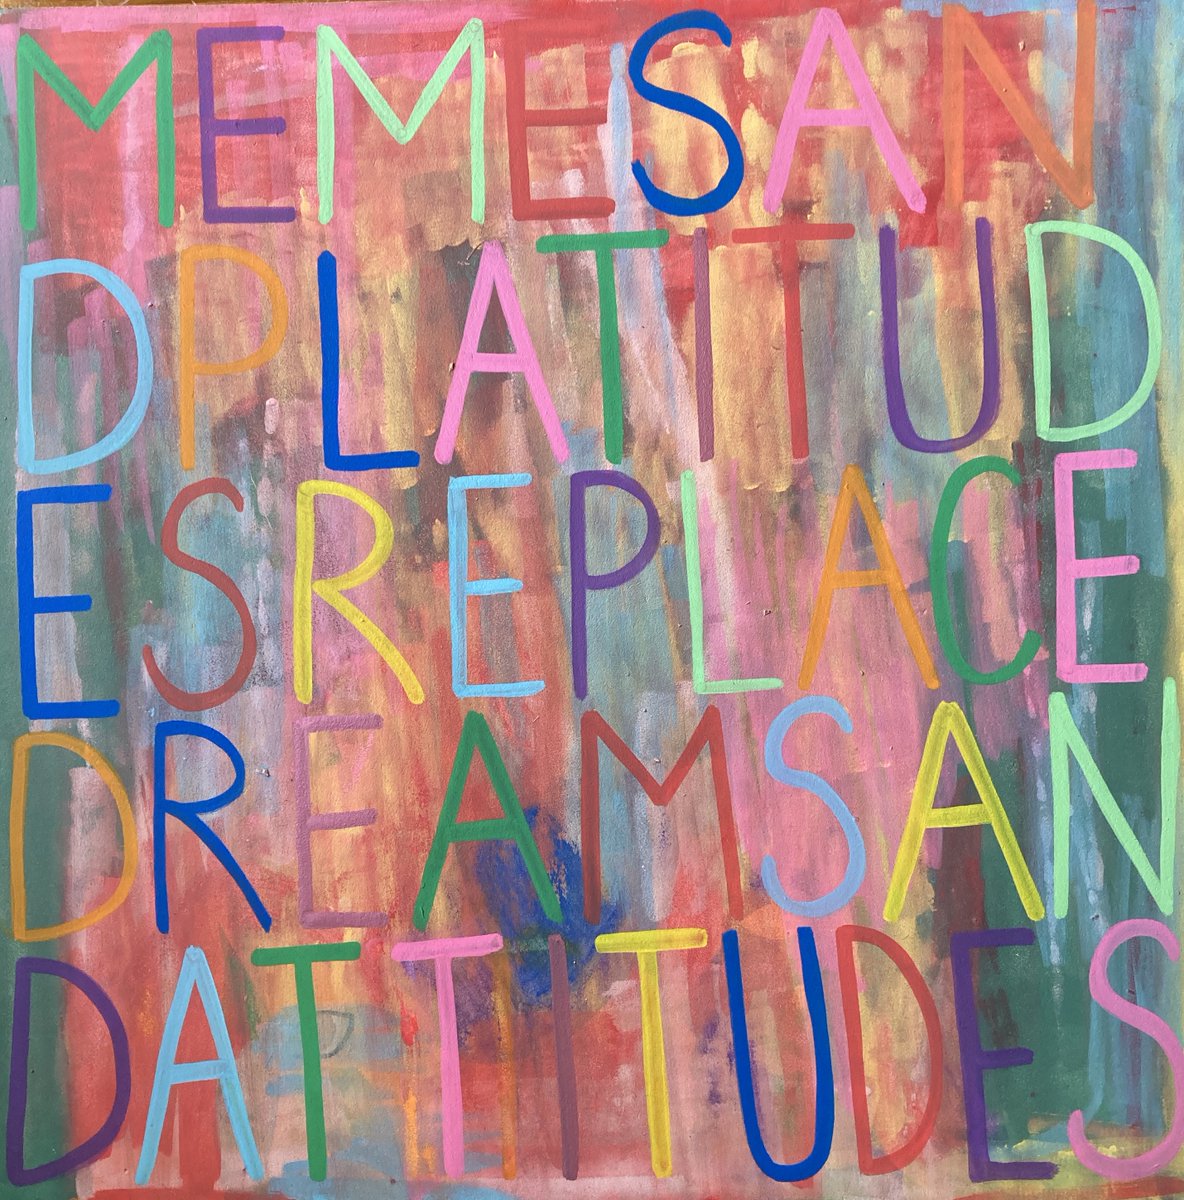 MEMESAN
DPLATITUD
ESREPLACE
DREAMSAN
DATTITUDES